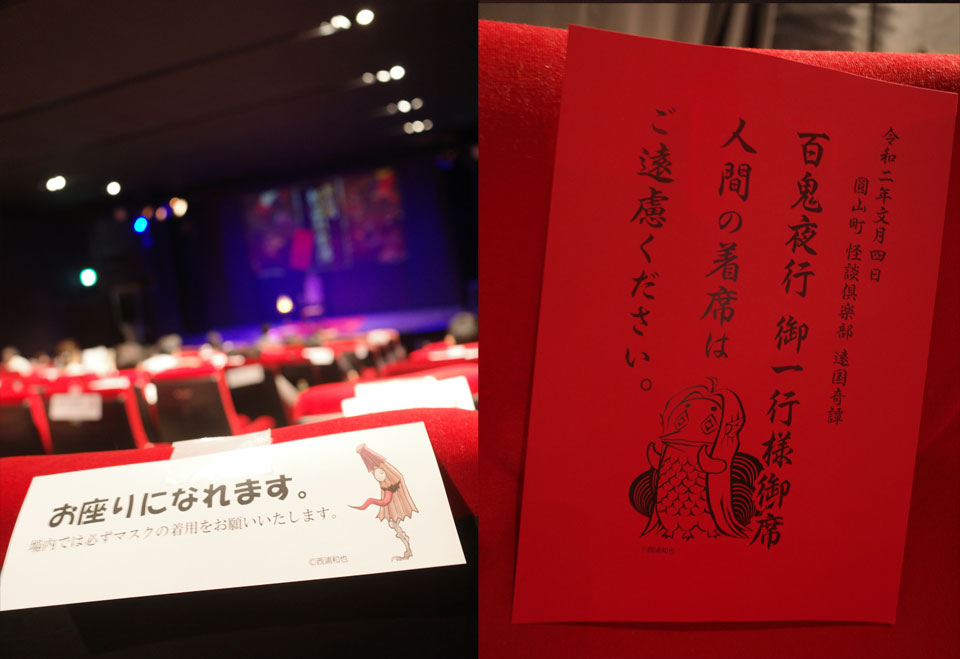 お座りになれます。
場内では必ずマスクの着用をお願いいたします。
©西浦和也
令和二年文月四日
圓山町 怪談倶楽部 遠国奇譚
百鬼夜行 御一行様御席
人間の着席は
ご遠慮ください。
©西浦和也